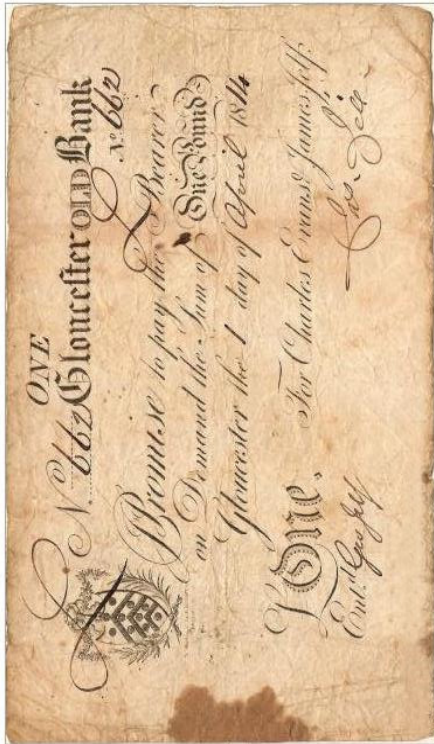 ONE
No. 662 Gloucester OLD Bank
No 662
I Promise to pay the Bearer
on Demand the Sum of One Pound
Gloucester the 1 day of April 1814
For Charles Evans & James Jelf
£One.
Entd. Geo Jelf Jas. Jelf